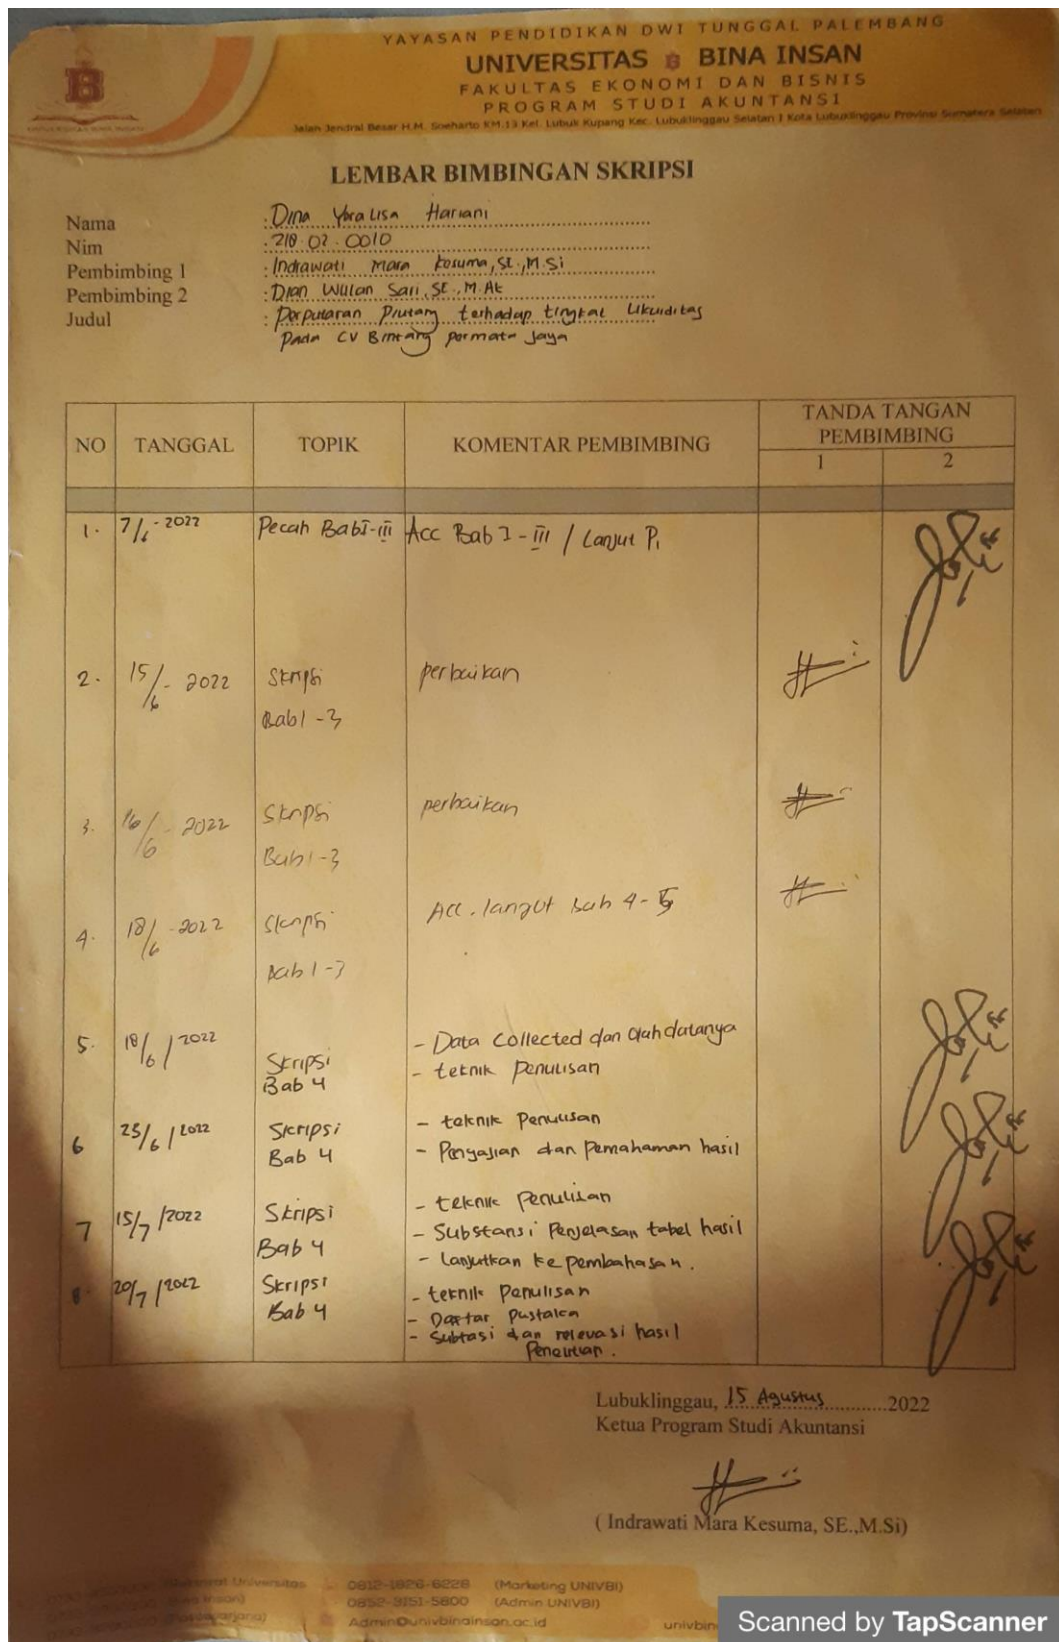 YAYASAN PENDIDIKAN DWI TUNGGAL PALEMBANG
UNIVERSITAS BINA INSAN
FAKULTAS EKONOMI DAN BISNIS
PROGRAM STUDI AKUNTANSI
Jalan Jendral Besar H.M. Soeharto KM.13 Kel. Lubuk Kupang Kec. Lubuklinggau Selatan I Kota Lubuklinggau Provinsi Sumatera Selatan
LEMBAR BIMBINGAN SKRIPSI
Nama : Dina Yoralisa Hariani
Nim : 218.02.0010
Pembimbing 1 : Indrawati Mara Kesuma, SE., M.Si
Pembimbing 2 : Dian Wulan Sari, SE., M.Ak
Judul : Perputaran Piutang terhadap tingkat Likuiditas
Pada CV Bintang Permata Jaya
NO TANGGAL TOPIK KOMENTAR PEMBIMBING TANDA TANGAN PEMBIMBING
1 2
1. 7/6-2022 Pecah Bab I-III Acc Bab I-III / Lanjut P1
2. 15/6-2022 Skripsi perbaikan
Bab 1-3
3. 16/6-2022 Skripsi perbaikan
Bab 1-3
4. 18/6-2022 Skripsi Acc. lanjut bab 4-5
Bab 1-3
5. 18/6/2022 Skripsi - Data Collected dan olah datanya
Bab 4 - teknik Penulisan
6 25/6/2022 Skripsi - teknik Penulisan
Bab 4 - Penyajian dan Pemahaman hasil
7 15/7/2022 Skripsi - teknik Penulisan
Bab 4 - Substansi Penjelasan tabel hasil
- Lanjutkan ke pembahasan.
8. 20/7/2022 Skripsi - teknik Penulisan
Bab 4 - Daftar Pustaka
- Subtasi dan relevasi hasil
Penelitian.
Lubuklinggau, 15 Agustus 2022
Ketua Program Studi Akuntansi
( Indrawati Mara Kesuma, SE.,M.Si)
Universitas 0812-1826-8228 (Marketing UNIVBI)
0852-3151-5800 (Admin UNIVBI)
Admin@univbinainsan.ac.id
Scanned by TapScanner